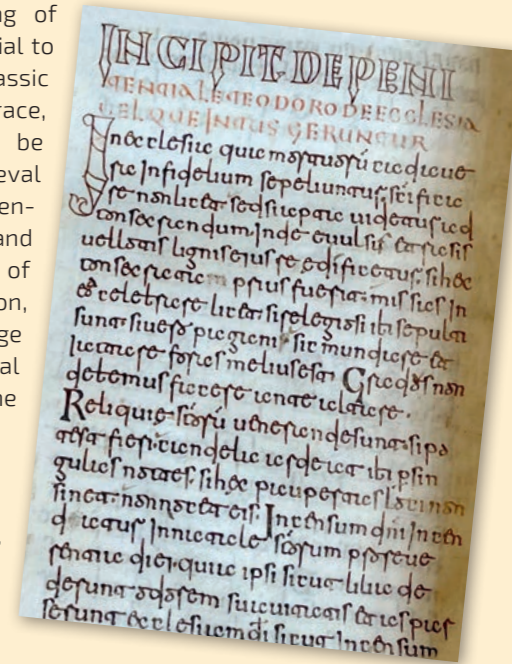 ng of
ial to
assic
race,
be
eval
en-
and
of
on,
ge
al
ne
INCIPIT DE PENI
TENTIA LE TEODORO DE ECCLESIA
UEL QUE INTUS GERUNTUR
In ecclesiae quae mortuorū cadaue
ra Infidelium sepeliuntur scificare
non licet sed si apta uidetur ad
consecrandum Inde euulsis et rasis
uel lotis lignis eius reedificatur si hec
consecrata prius fuerat missas In
ea celebrare licet si relegiosi ibi sepulti
sunt si uero pagani sic mundare et
iactare foras melius est Gradus non
debemus facere ante altare
Reliquie scorū uenerande sunt si po
test fieri candela ardeat ibi p sin
gulas noctes si hec paupertas loci non
sinet non nocet eis Incensum dni Incen
datur In natale scorum pro reue
rentia diei quia ipsi sicut lilia de
derunt odorem suauitatis et aspers
serunt ecclesiam di sicut Incensum